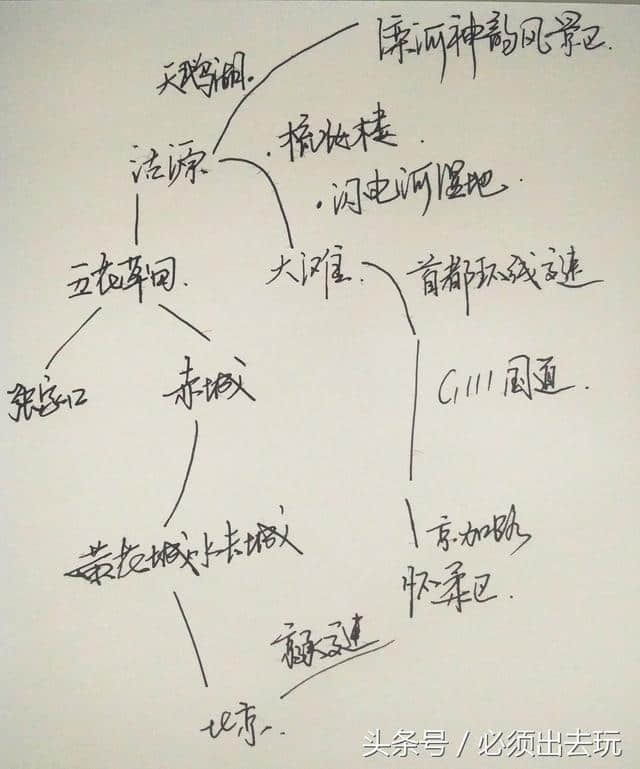 滦河神韵风景区
天鹅湖.
沽源
·梳妆楼.
·闪电河湿地.
五花草甸.
大滩.
首都环线高速
张家口
赤城
G111国道.
黄花城水长城
京加路
怀柔区.
京承高速
北京.
头条号 / 必须出去玩